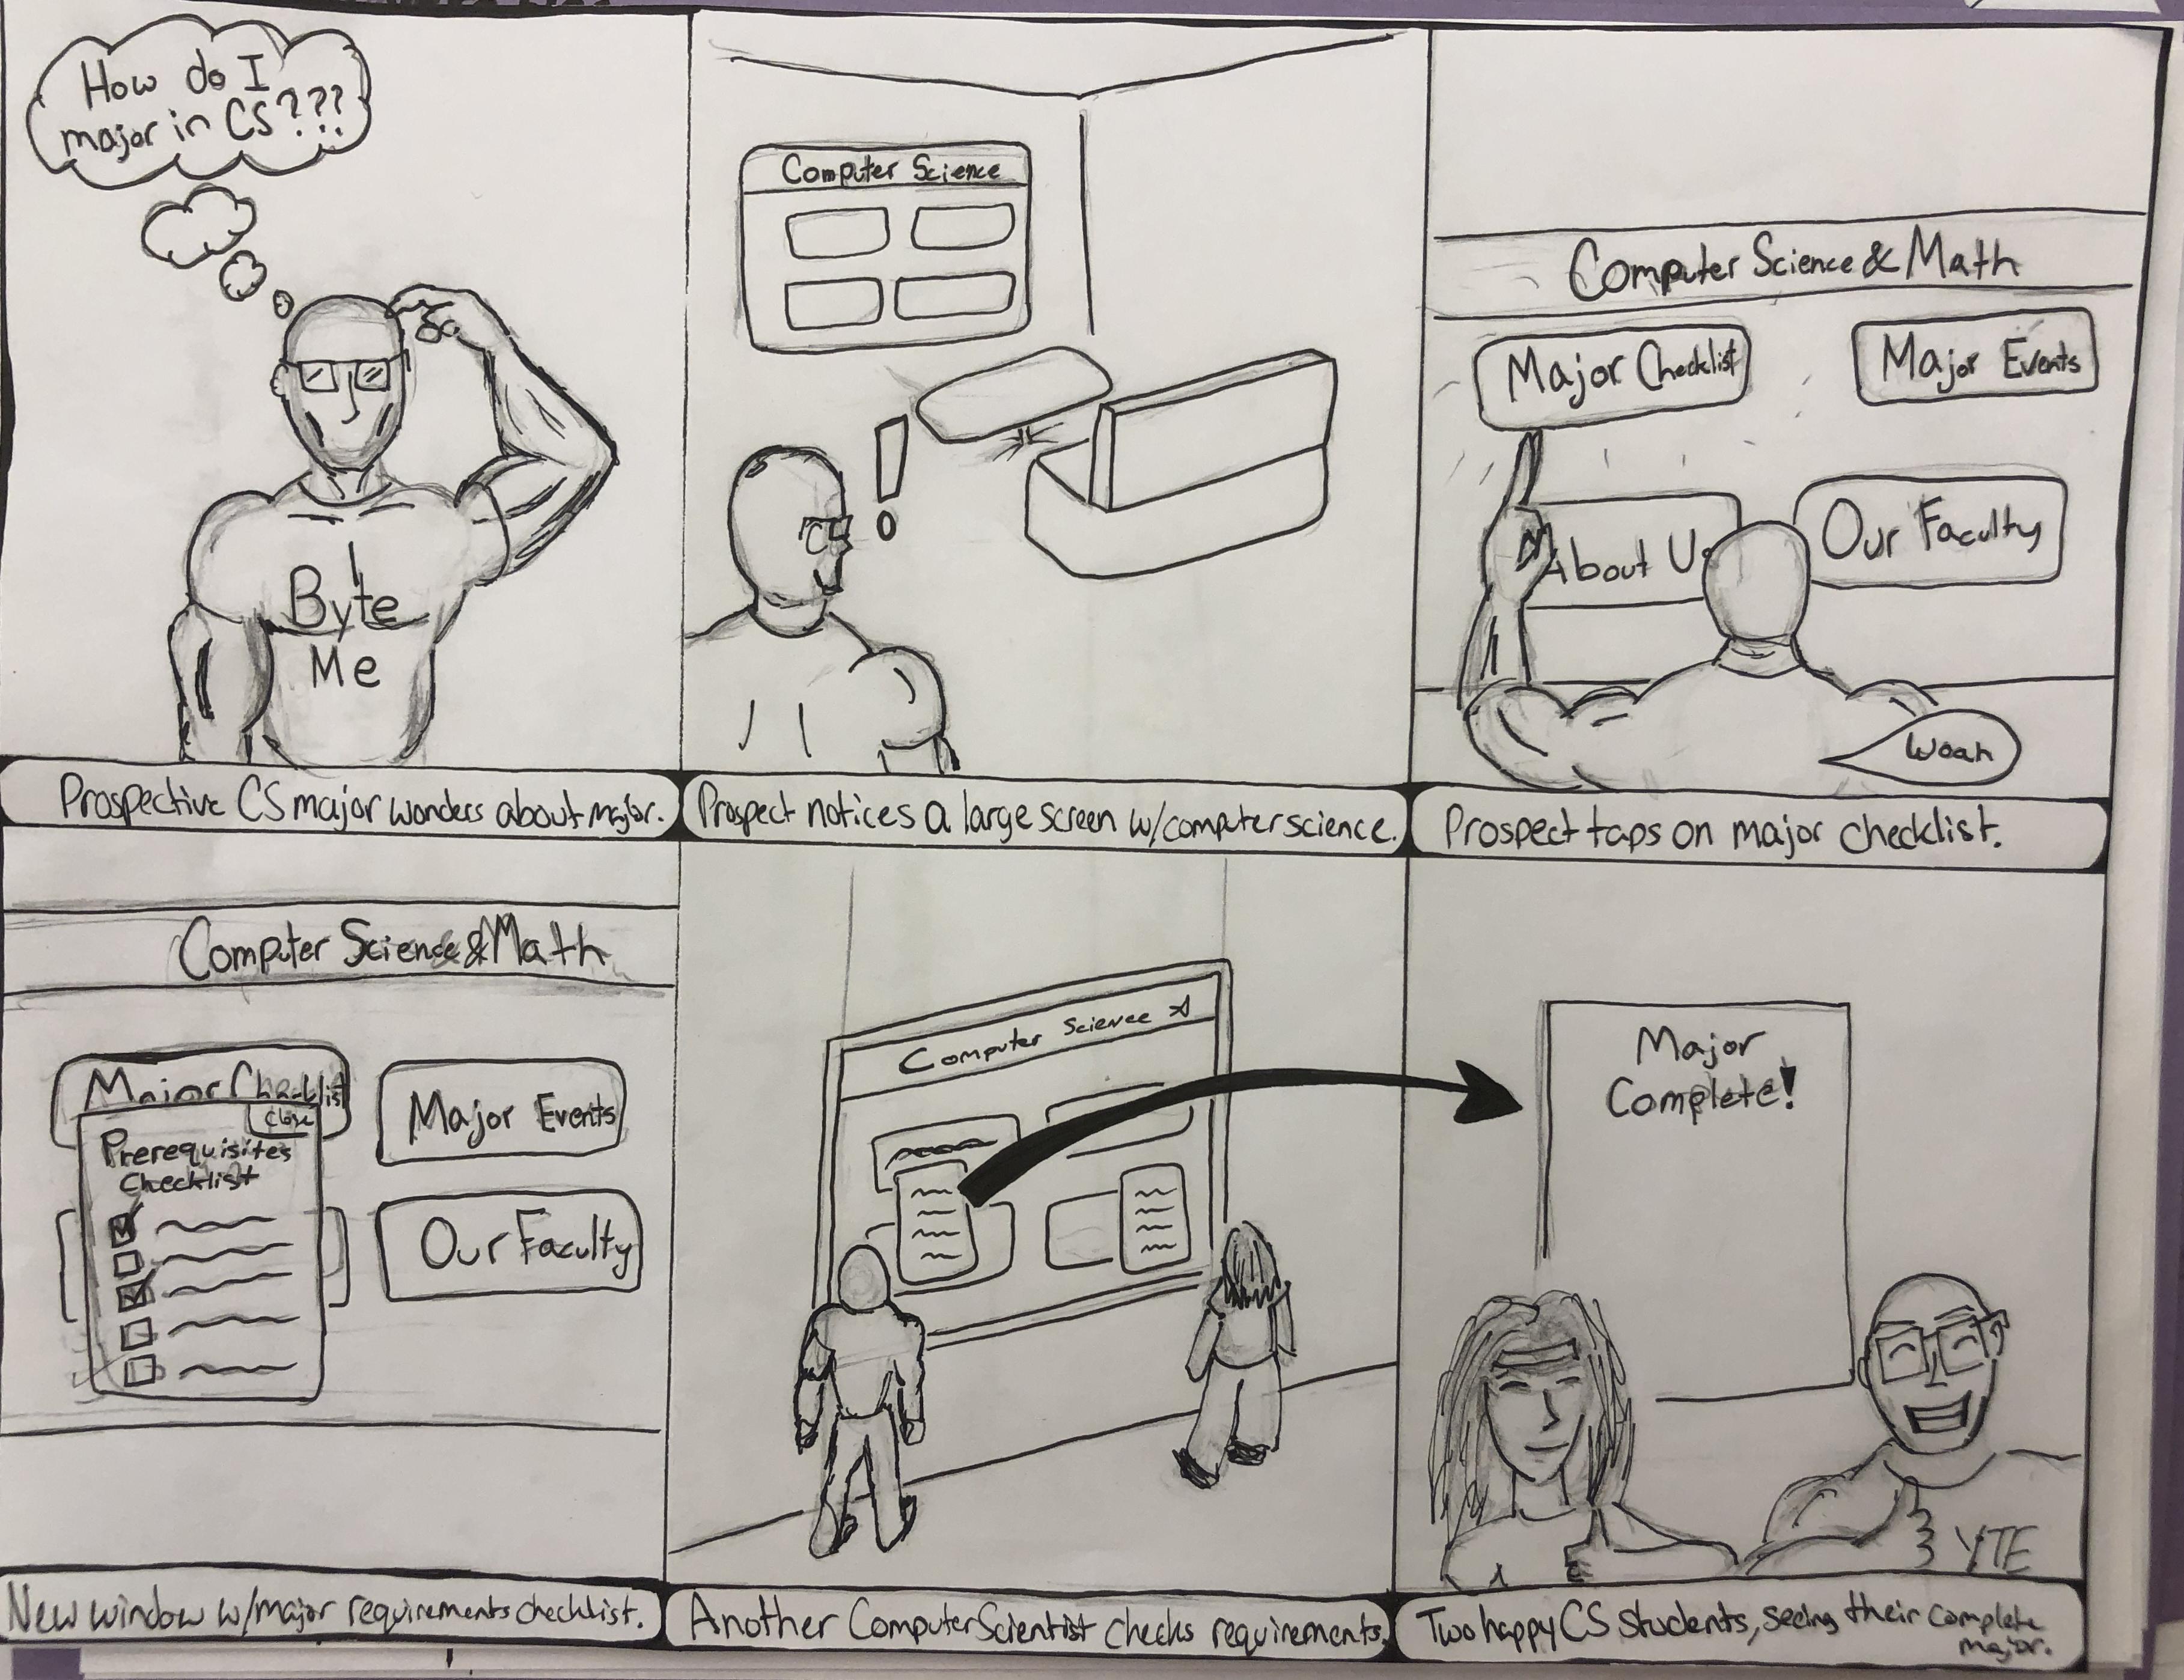 How do I
major in CS???
Byte
Me
Prospective CS major wonders about major.
Computer Science
Prospect notices a large screen w/computer science.
Computer Science & Math
Major Checklist
Major Events
About Us
Our Faculty
Woah
Prospect taps on major checklist.
Computer Science & Math
Major Checklist
Close
Prerequisites
Checklist
Major Events
Our Faculty
New window w/major requirements checklist.
Computer Science
Another Computer Scientist checks requirements.
Major
Complete!
YTE
Two happy CS students, seeing their complete
major.